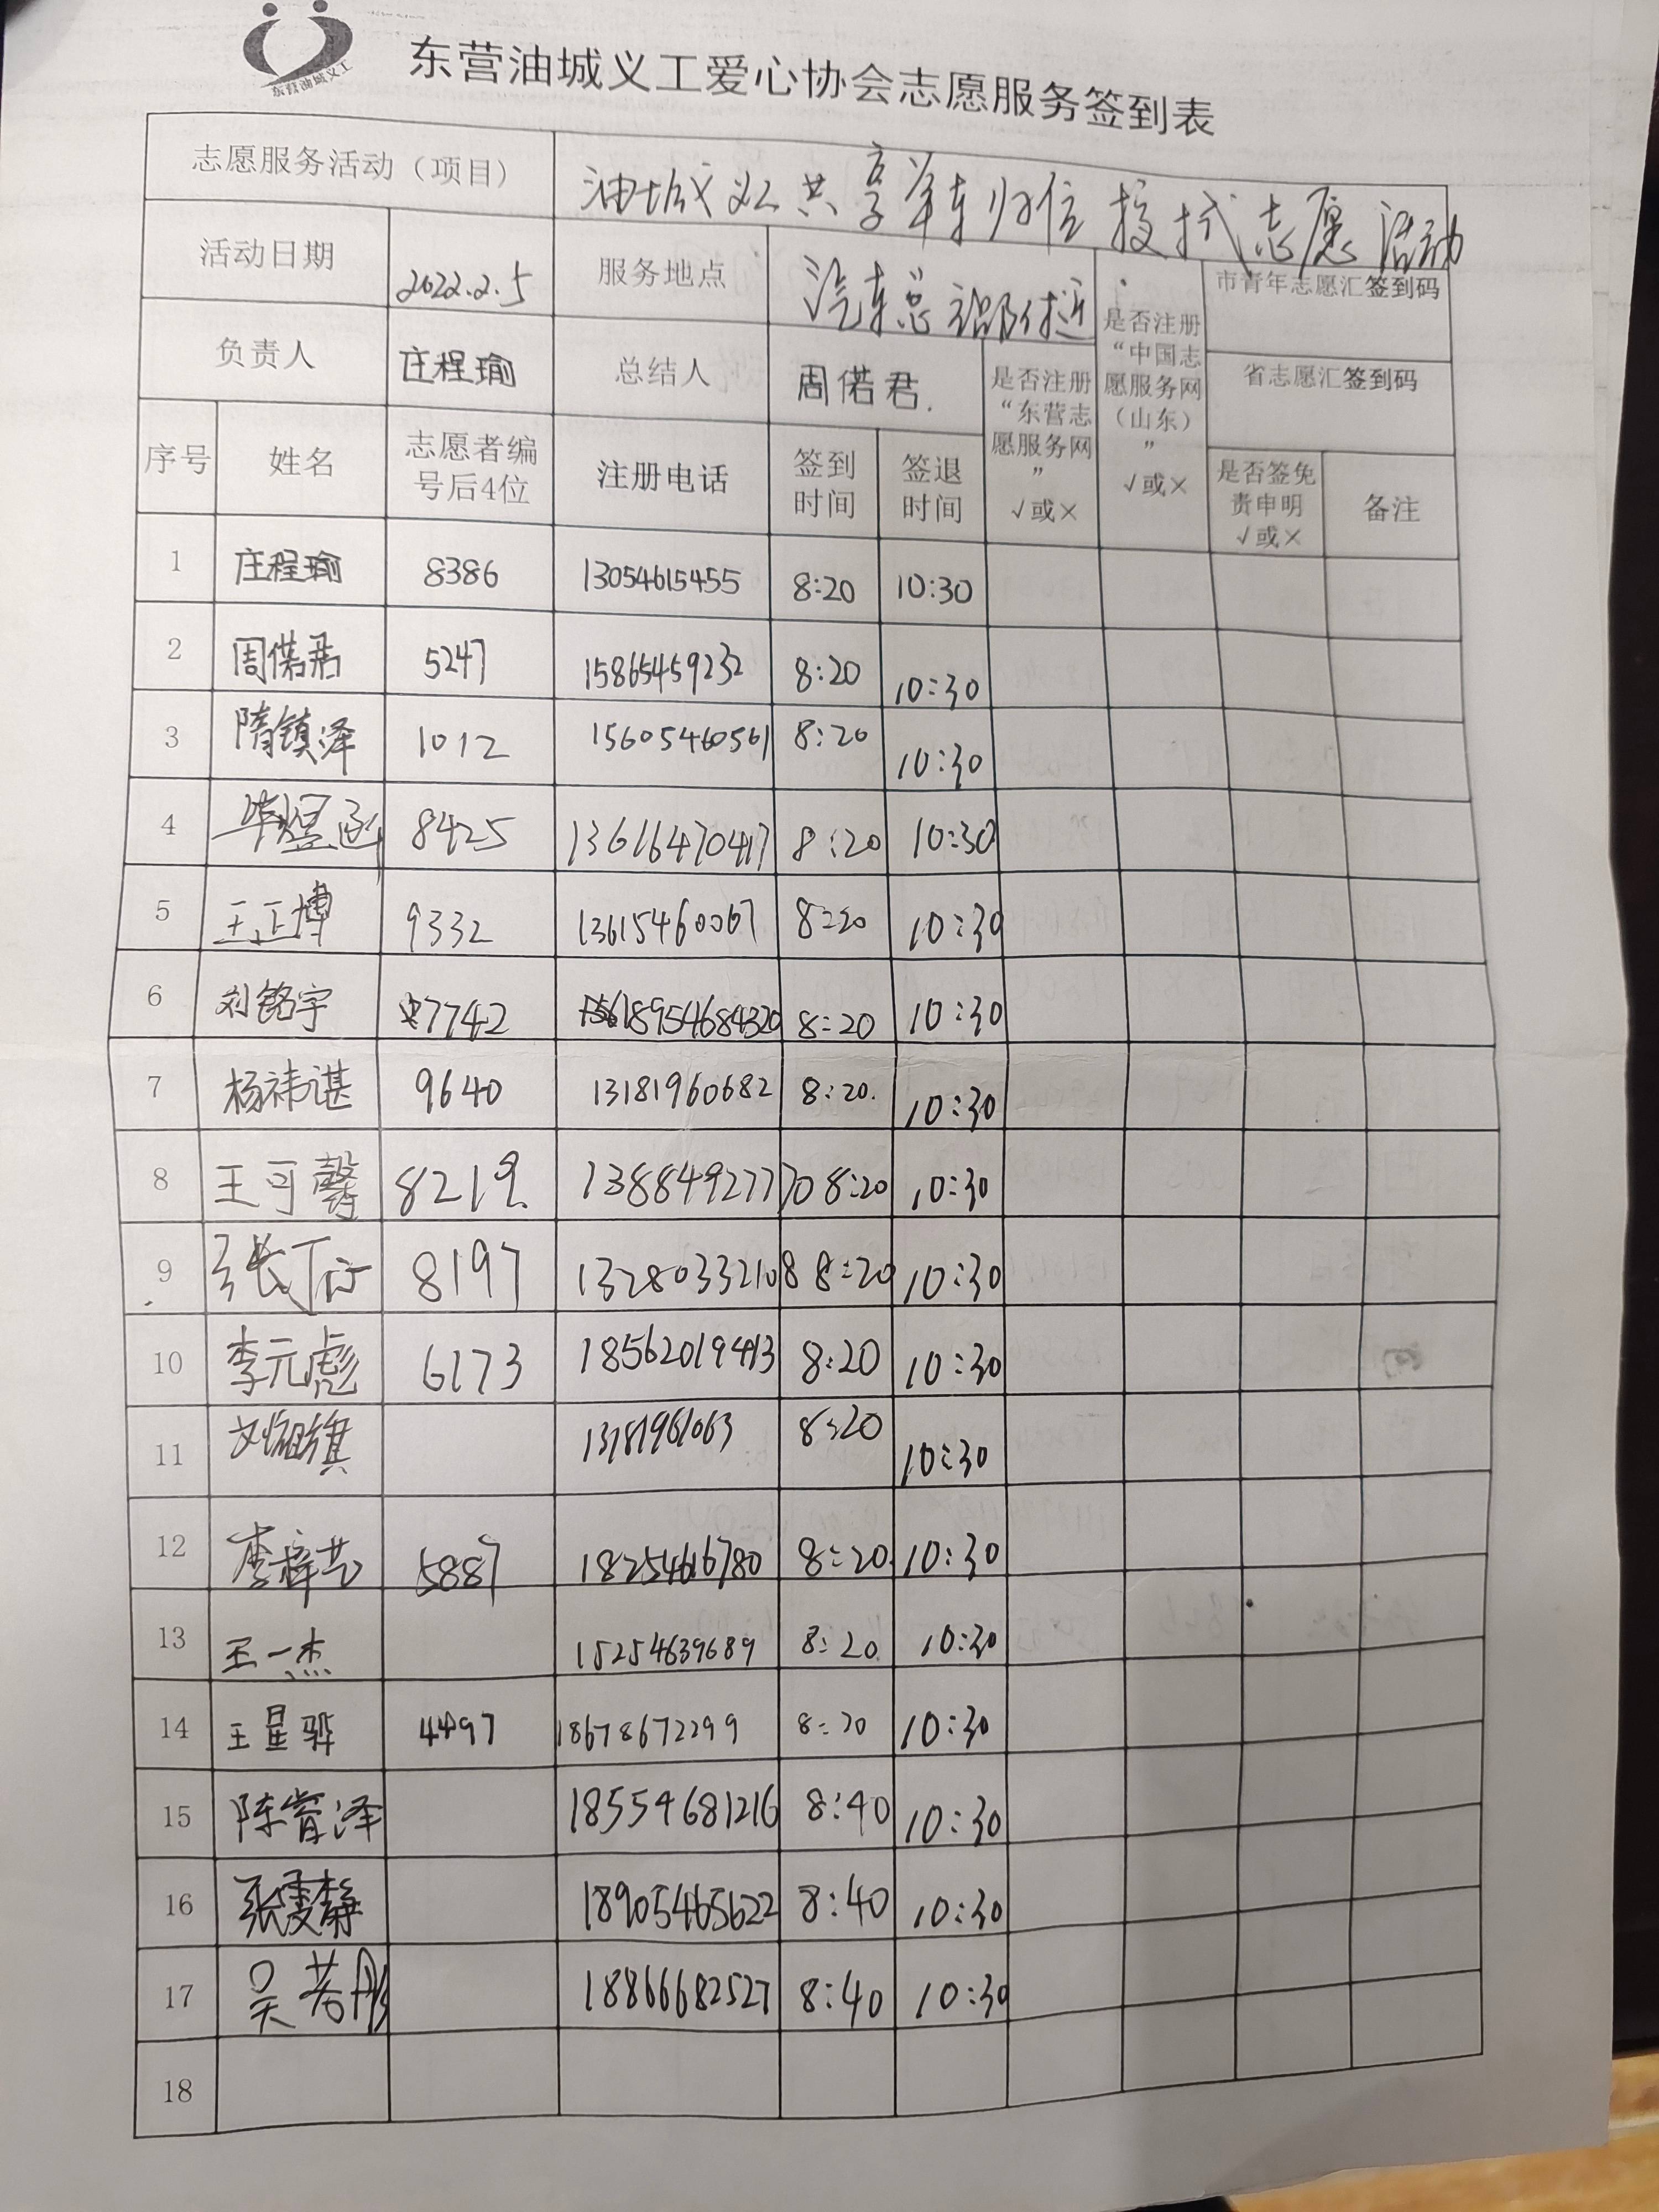 东营油城义工
东营油城义工爱心协会志愿服务签到表
志愿服务活动（项目） 油城义工共享单车归位 擦拭志愿活动
活动日期 2022.2.5 服务地点 汽车总站附近 市青年志愿汇签到码
负责人 庄程瑜 总结人 周偌君. 省志愿汇签到码
是否注册“东营志愿服务网” √或×
是否注册“中国志愿服务网（山东）” √或×
序号 姓名 志愿者编号后4位 注册电话 签到时间 签退时间 是否签免责申明√或× 备注
1 庄程瑜 8386 13054615455 8:20 10:30
2 周偌君 5247 15865459232 8:20 10:30
3 隋镇泽 1012 15605460561 8:20 10:30
4 毕煜函 8425 13616470417 8:20 10:30
5 王正博 9332 13615460067 8:20 10:30
6 刘铭宇 7742 18954684320 8:20 10:30
7 杨祎谌 9640 13181960682 8:20. 10:30
8 王可馨 8219. 13884927770 8:20 10:30
9 8197 13280332108 8:20 10:30
10 李元彪 6173 18562019413 8:20 10:30
11 8:20 10:30
12 李梓艺 5887 18254616780 8:20 10:30
13 王一杰 15254639689 8:20 10:30
14 王星骅 4497 18678672299 8:20 10:30
15 陈睿泽 18554681216 8:40 10:30
16 张雯静 18905465622 8:40 10:30
17 吴若彤 18866682527 8:40 10:30
18